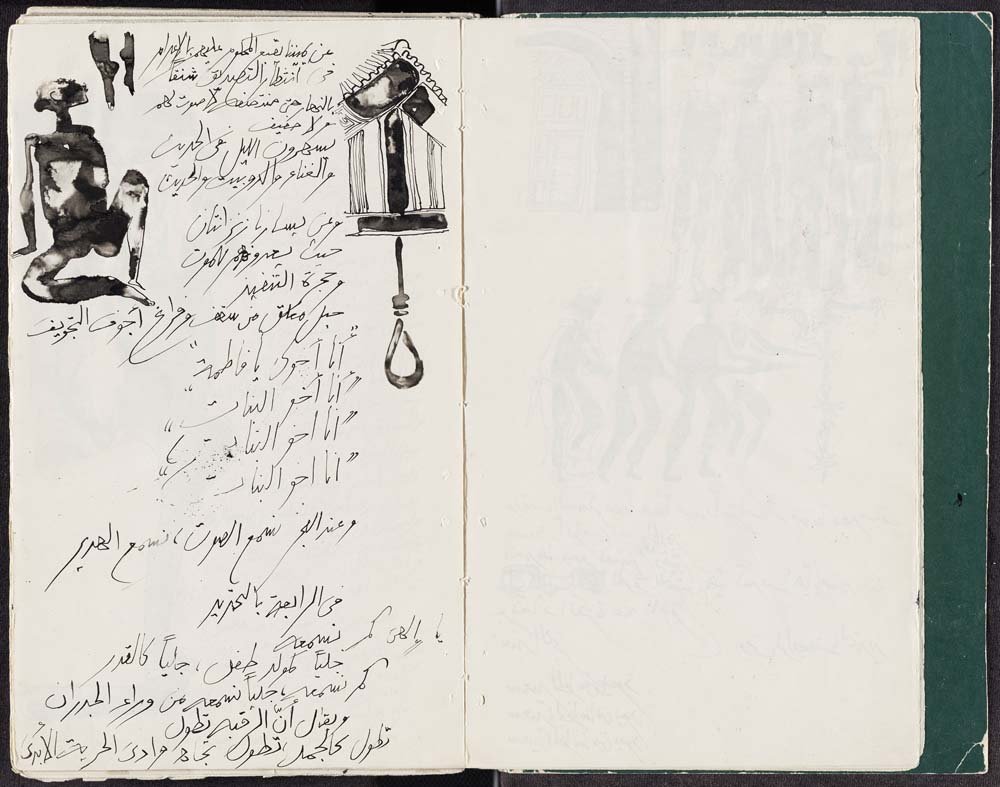 عن يميننا يقبع المحكوم عليهم بالإعدام
في انتظار التصديق شنقاً
بالنهار حتى منتصفه لا صوت لهم
ولا حفيف
يسهرون الليل في الحديث
والغناء والدوبيت والحديث
وعن يسارنا زنزانتان
حيث يعدونهم للموت
وحجرة التنفيذ
حبل معلق من سقف وفراغ أجوف التجويف
"أنا أخوكي يا فاطمة"
"أنا أخو البنات"
"أنا أخو البنات يا"
"أنا أخو البنات"
وعند الفجر نسمع الصوت، نسمع الهدير
في الرابعة بالتحديد
يا إلهي كم نسمعه
جلياً كمولد طفل، جلياً كالقدر
كم نسمعه، جلياً نسمعه من وراء الجدران
ويقال أنّ الرقبة تطول
تطول كالجمل، تطول تجاه وادي الحرية الأبدي